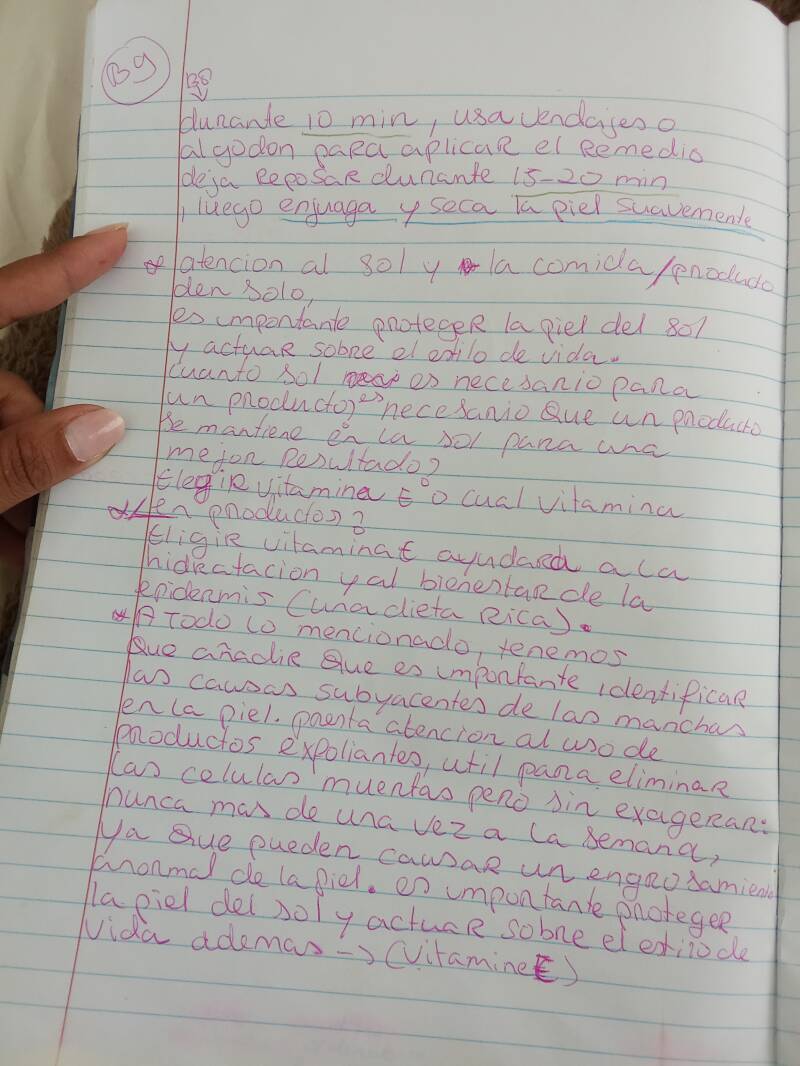 B9
B8
durante 10 min, usa vendajes o
algodon para aplicar el remedio
deja reposar durante 15-20 min
, luego enjuaga y seca la piel suavemente
atencion al sol y la comida/producto
den solo,
es importante proteger la piel del sol
y actuar sobre el estilo de vida.
cuanto sol es necesario para
un producto, es necesario que un producto
se mantiene en la sol para una
mejor resultado?
Elegir vitamina E o cual vitamina
en productos?
Eligir vitamina E ayudara a la
hidratacion y al bienestar de la
epidermis (una dieta rica).
A todo lo mencionado, tenemos
que añadir que es importante identificar
las causas subyacentes de las manchas
en la piel. presta atencion al uso de
productos expoliantes, util para eliminar
las celulas muertas pero sin exagerar:
nunca mas de una vez a la semana,
ya que pueden causar un engrosamiento
anormal de la piel. es importante proteger
la piel del sol y actuar sobre el estilo de
vida ademas → (vitamine E)